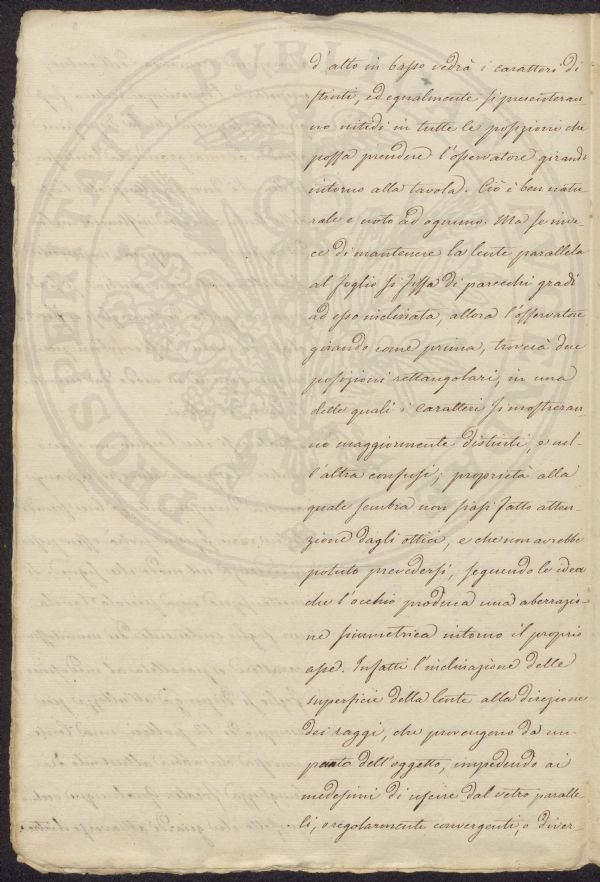 d'alto in basso vedrà i caratteri di
stinti, ed egualmente si presenteran
no nitidi in tutte le posizioni che
possa prendere l'osservatore girando
intorno alla tavola. Ciò è ben natu-
rale e noto ad ognuno. Ma se inve-
ce di mantenere la lente parallela
al foglio si fissa di parecchi gradi
ad esso inclinata, allora l'osservatore
girando come prima, troverà due
posizioni rettangolari, in una
delle quali i caratteri si mostreran
no maggiormente distinti, e nel-
l'altra confusi; proprietà alla
quale sembra non siasi fatto atten-
zione dagli ottici, e che non avrebbe
potuto prevedersi, seguendo le idee
che l'occhio produca una aberrazio-
ne simmetrica intorno il proprio
asse. Infatti l'inclinazione delle
superficie della lente alla direzione
dei raggi, che provengono da un
punto dell'oggetto, impedendo ai
medesimi di uscire dal vetro paralle
li, o regolarmente convergenti, o diver-
PROSPERITATI PVBLI